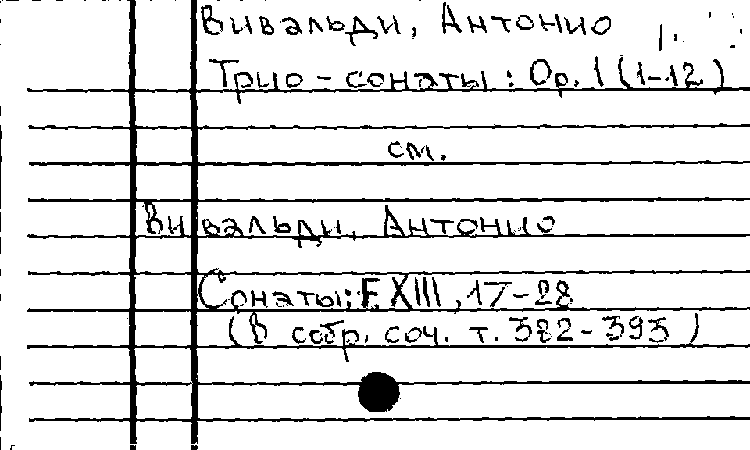 Вивальди, Антонио
Трио-сонаты: Ор. 1 (1-12)
см.
Вивальди, Антонио
Сонаты: F. XIII, 17-28
(В собр. соч. т. 382-393)